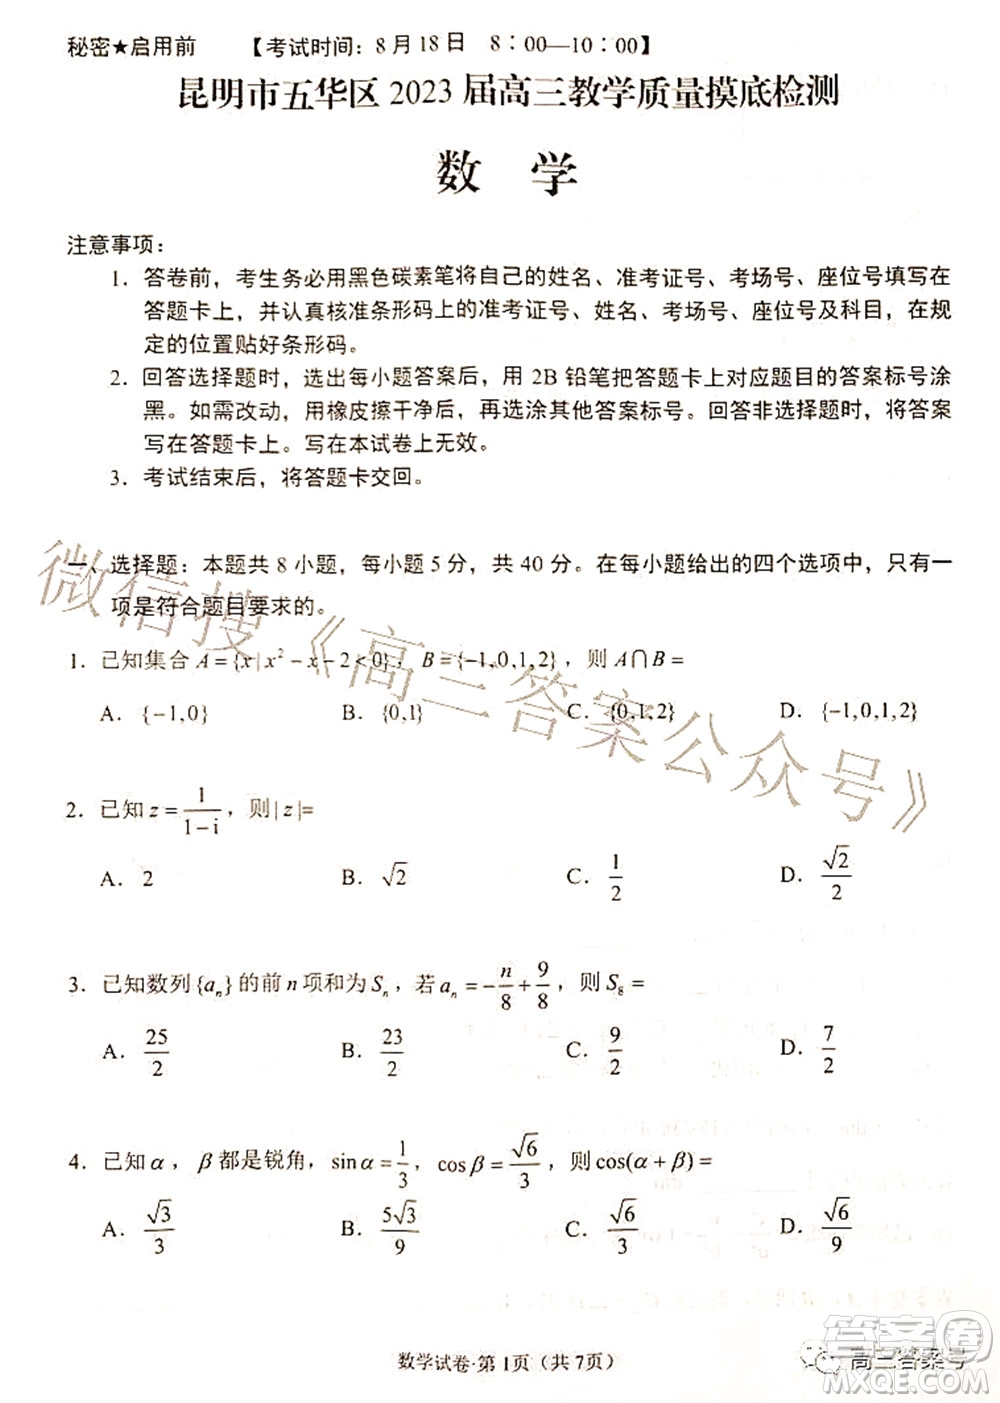 秘密★启用前 【考试时间：8月18日 8：00—10：00】
昆明市五华区 2023 届高三教学质量摸底检测
数 学
注意事项：
1．答卷前，考生务必用黑色碳素笔将自己的姓名、准考证号、考场号、座位号填写在
答题卡上，并认真核准条形码上的准考证号、姓名、考场号、座位号及科目，在规
定的位置贴好条形码。
2．回答选择题时，选出每小题答案后，用 2B 铅笔把答题卡上对应题目的答案标号涂
黑。如需改动，用橡皮擦干净后，再选涂其他答案标号。回答非选择题时，将答案
写在答题卡上。写在本试卷上无效。
3．考试结束后，将答题卡交回。
一、选择题：本题共 8 小题，每小题 5 分，共 40 分。在每小题给出的四个选项中，只有一
项是符合题目要求的。
1．已知集合 A={x|x²−x−2<0}，B={−1,0,1,2}，则 A∩B=
A．{−1,0} B．{0,1} C．{0,1,2} D．{−1,0,1,2}
2．已知 z=1/(1−i)，则|z|=
A．2 B．√2 C．1/2 D．√2/2
3．已知数列{aₙ}的前 n 项和为 Sₙ，若 aₙ=−n/8+9/8，则 S₈=
A．25/2 B．23/2 C．9/2 D．7/2
4．已知 α，β 都是锐角，sinα=1/3，cosβ=√6/3，则 cos(α+β)=
A．√3/3 B．5√3/9 C．√6/3 D．√6/9
数学试卷·第 1页（共 7页）
微信搜《高三答案公众号》
高三答案号
答案卷
MXQE.COM